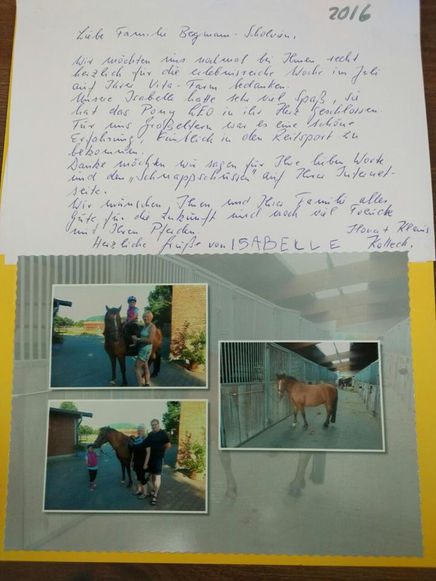 2016
Liebe Familie Begmann-Scholven,
Wir möchten uns nochmal bei Ihnen recht
herzlich für die erlebnisreiche Woche im Juli
auf Ihrer Vita-Farm bedanken.
Unsere Isabelle hatte sehr viel Spaß, sie
hat das Pony LEO in ihr Herz geschlossen
Für uns Großeltern war es eine schöne
Erfahrung, Einblick in den Reitsport zu
bekommen.
Danke möchten wir sagen für Ihre lieben Worte
und den "Schnappschüssen" auf Ihrer Internet-
seite.
Wir wünschen, Ihnen und Ihrer Familie alles
Gute für die Zukunft und noch viel Freude
mit Ihren Pferden.
Herzliche Grüße von ISABELLE
Ilona + Klaus